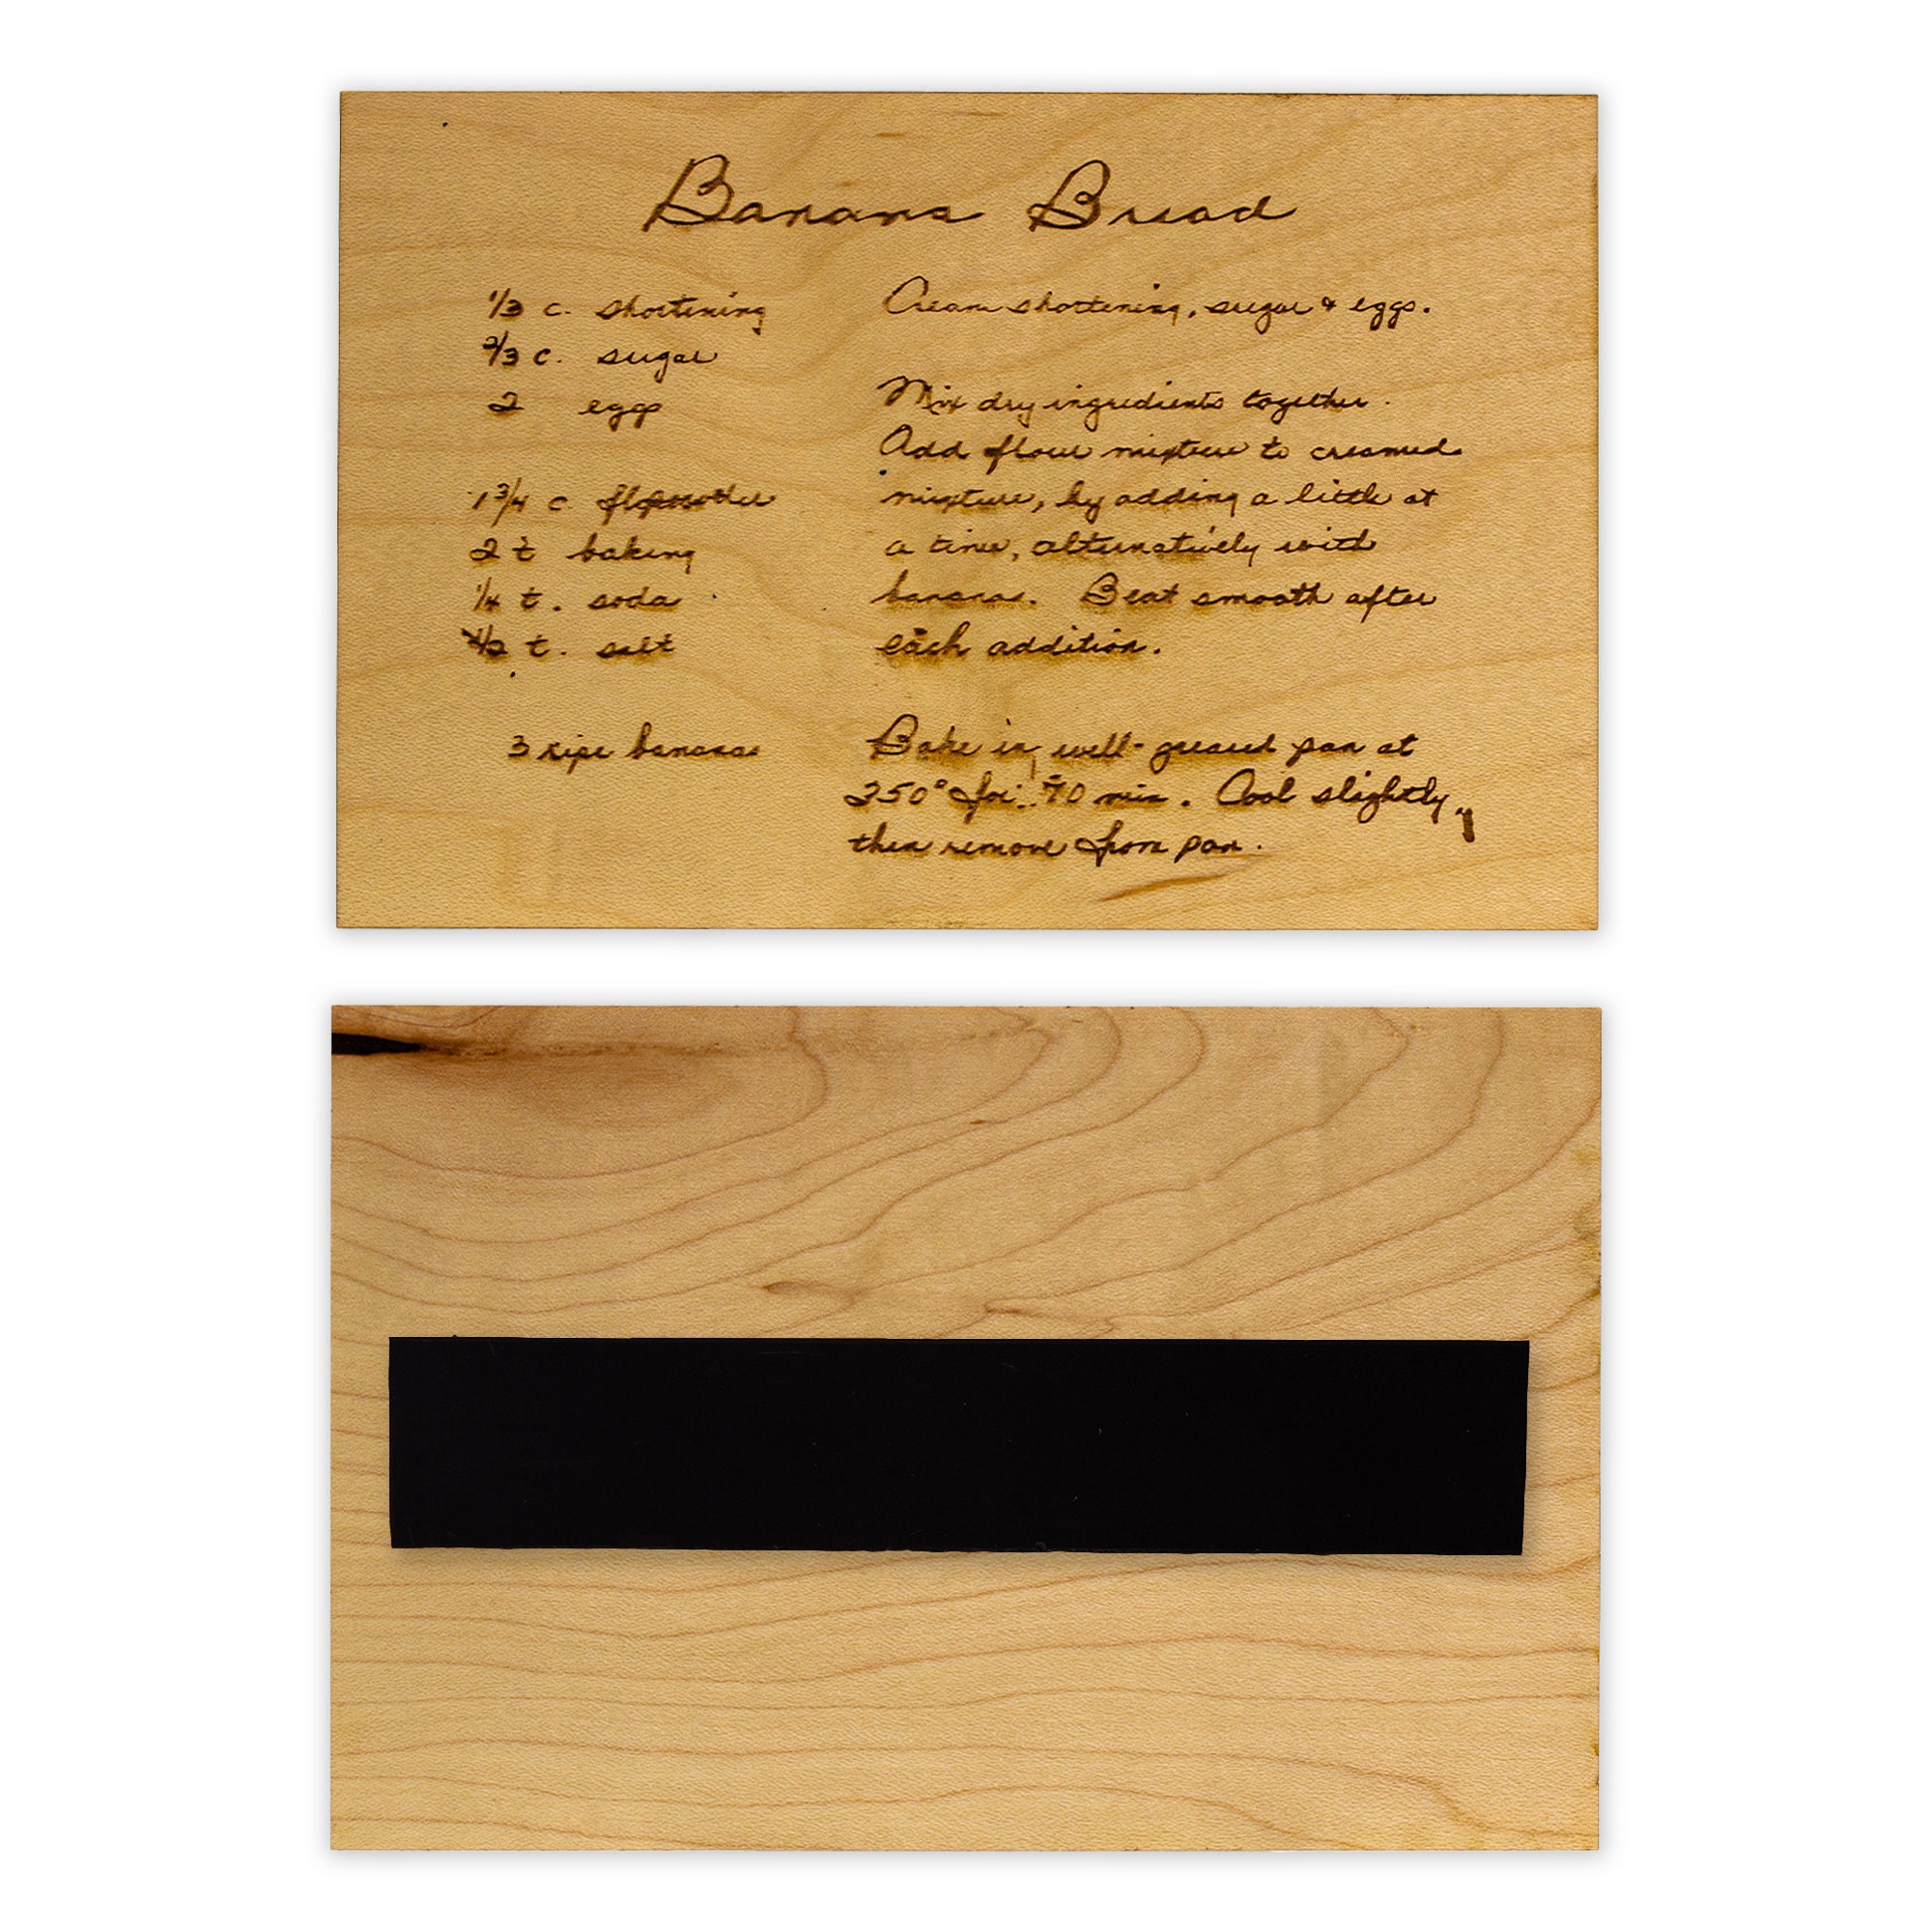 Banana Bread
1/3 c. shortening
2/3 c. sugar
2 eggs
1 3/4 c.
2 t baking
1/4 t. soda
1/2 t. salt
3 ripe bananas
Cream shortening, sugar & eggs.
Mix dry ingredients together.
Add flour mixture to creamed
mixture, by adding a little at
a time, alternatively with
bananas. Beat smooth after
each addition.
Bake in well-greased pan at
350° for 70 min. Cool slightly,
then remove from pan.